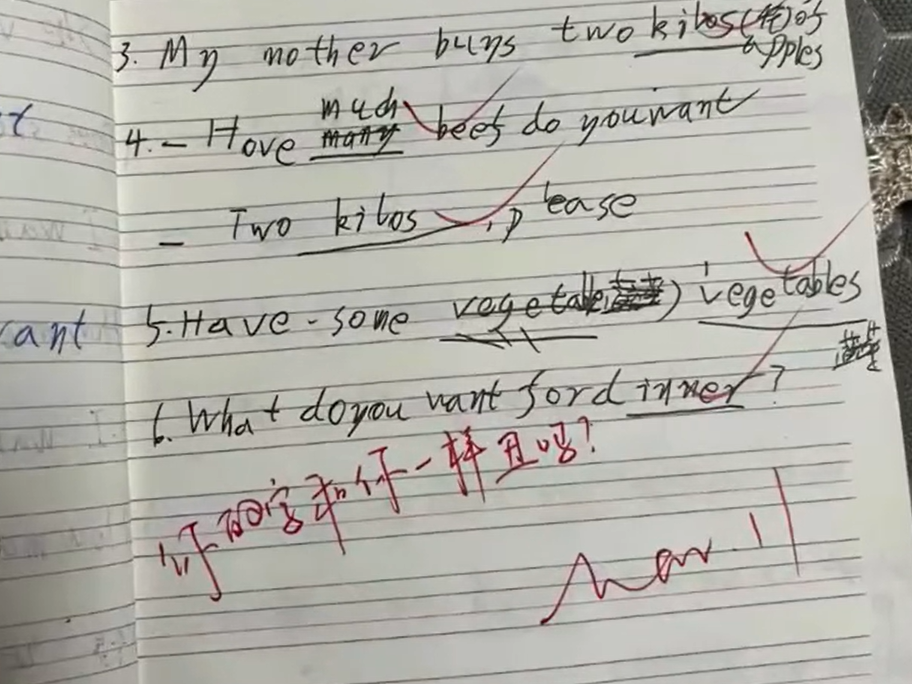 3. My mother buys two kilos(千克)of
apples
much
4. - Hove many beef do you want
- Two kilos, please
5. Have some vegetable) vegetables
6. What do you want for dinner?
你的字和你一样丑吗?
Mar. 11
ant